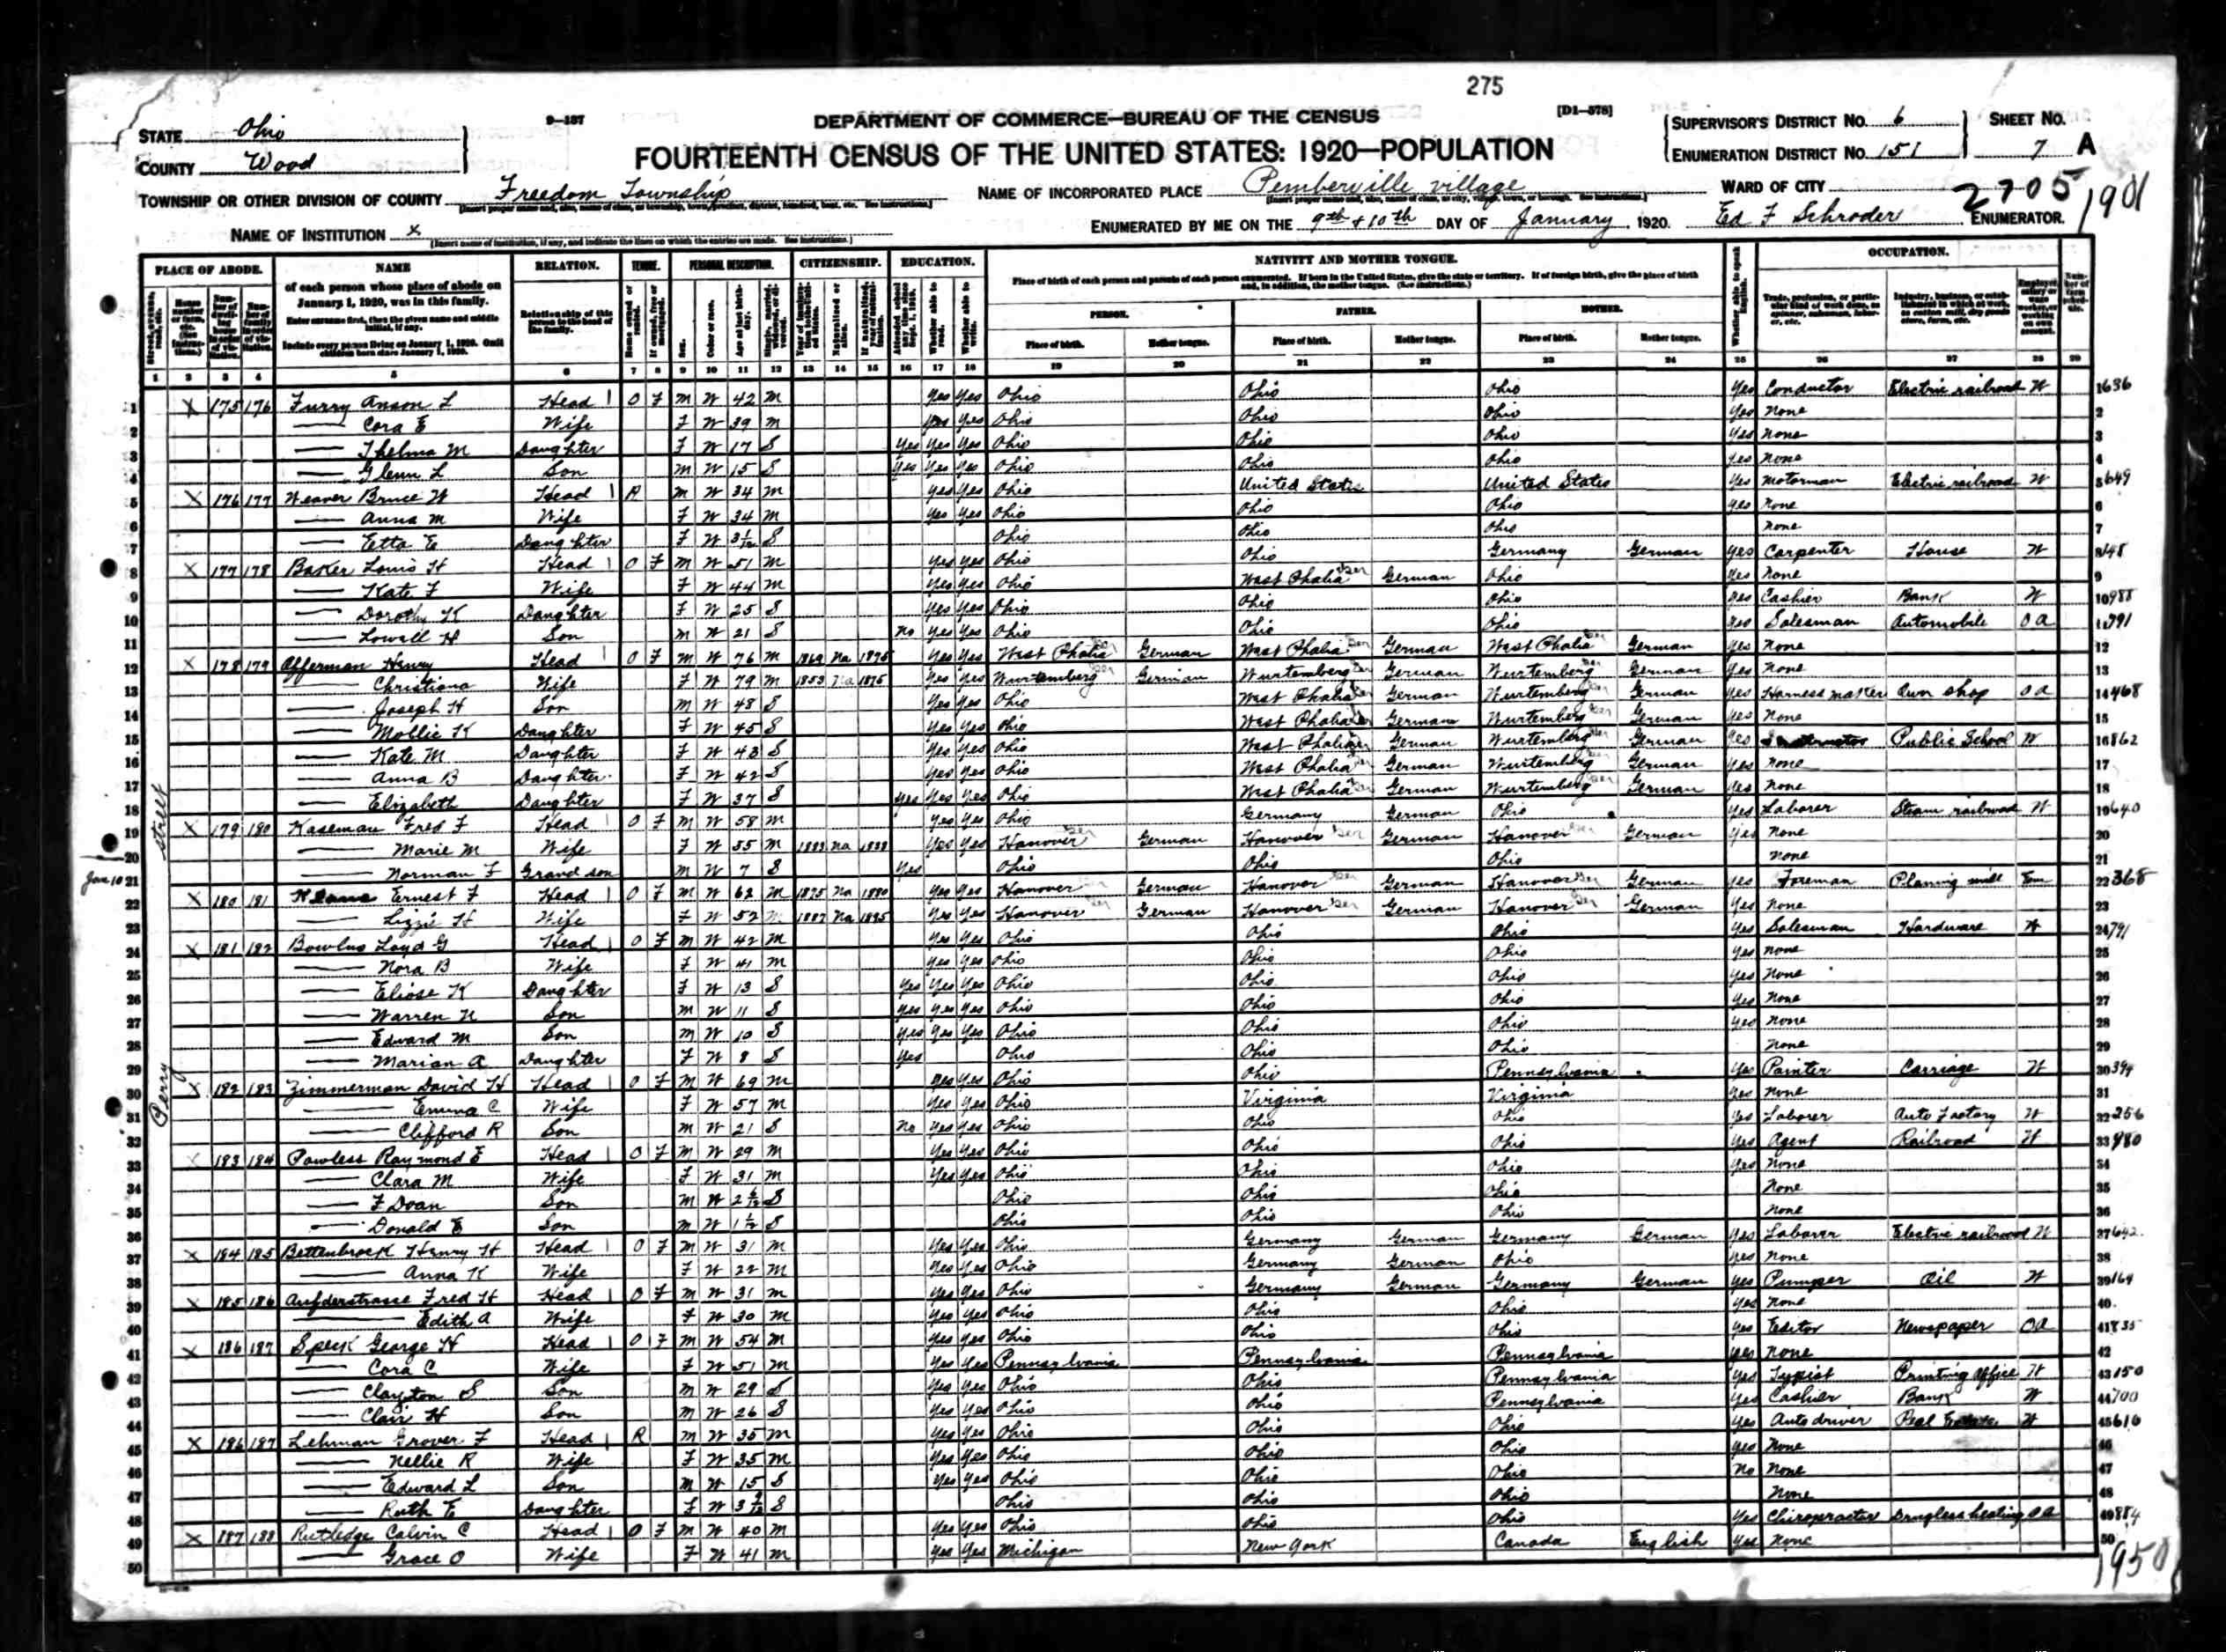 275
STATE Ohio
9-137
DEPARTMENT OF COMMERCE—BUREAU OF THE CENSUS
[D1-578]
SUPERVISOR'S DISTRICT NO. 6
SHEET NO.
COUNTY Wood
FOURTEENTH CENSUS OF THE UNITED STATES: 1920—POPULATION
ENUMERATION DISTRICT NO. 151
7 A
TOWNSHIP OR OTHER DIVISION OF COUNTY Freedom Township
NAME OF INCORPORATED PLACE Pemberville village
WARD OF CITY
2705
1901
NAME OF INSTITUTION X
ENUMERATED BY ME ON THE 9th & 10th DAY OF January, 1920. Ed F Schroder ENUMERATOR.
PLACE OF ABODE. NAME RELATION. TENURE. PERSONAL DESCRIPTION. CITIZENSHIP. EDUCATION. NATIVITY AND MOTHER TONGUE. OCCUPATION.
of each person whose place of abode on January 1, 1920, was in this family.
Enter surname first, then the given name and middle initial, if any.
Include every person living on January 1, 1920. Omit children born since January 1, 1920.
Relationship of this person to the head of the family.
Place of birth of each person and parents of each person enumerated. If born in the United States, give the state or territory. If of foreign birth, give the place of birth and, in addition, the mother tongue. (See instructions.)
PERSON. FATHER. MOTHER.
Place of birth. Mother tongue. Place of birth. Mother tongue. Place of birth. Mother tongue.
1 2 3 4 5 6 7 8 9 10 11 12 13 14 15 16 17 18 19 20 21 22 23 24 25 26 27 28 29
1 X 175 176 Furry Anson L Head 1 O F M W 42 M Yes Yes Ohio Ohio Ohio Yes Conductor Electric railroad W 1 636
2 — Cora E Wife F W 39 M Yes Yes Ohio Ohio Ohio Yes None 2
3 — Thelma M Daughter F W 17 S Yes Yes Yes Ohio Ohio Ohio Yes None 3
4 — Glenn L Son M W 15 S Yes Yes Yes Ohio Ohio Ohio Yes None 4
5 X 176 177 Weaver Bruce W Head 1 R M W 34 M Yes Yes Ohio United States United States Yes Motorman Electric railroad W 5 649
6 — Anna M Wife F W 34 M Yes Yes Ohio Ohio Ohio Yes None 6
7 — Etta E Daughter F W S Ohio Ohio Ohio None 7
8 X 177 178 Baker Louis H Head 1 O F M W 51 M Yes Yes Ohio Ohio Germany German Yes Carpenter House W 8 148
9 — Kate F Wife F W 44 M Yes Yes Ohio West Phalia Ger German Ohio Yes None 9
10 — Dorothy K Daughter F W 25 S Yes Yes Ohio Ohio Ohio Yes Cashier Bank W 10 988
11 — Lowell H Son M W 21 S No Yes Yes Ohio Ohio Ohio Yes Salesman Automobile OA 11 791
12 X 178 179 Afferman Henry Head 1 O F M W 76 M 1869 Na 1875 Yes Yes West Phalia Ger German West Phalia Ger German West Phalia Ger German Yes None 12
13 — Christiana Wife F W 79 M 1853 Na 1875 Yes Yes Wurtemberg Ger German Wurtemberg Ger German Wurtemberg Ger German Yes None 13
14 — Joseph H Son M W 48 S Yes Yes Ohio West Phalia Ger German Wurtemberg Ger German Yes Harness maker Own shop OA 14 468
15 — Mollie K Daughter F W 45 S Yes Yes Ohio West Phalia Ger German Wurtemberg Ger German Yes None 15
16 — Kate M Daughter F W 43 S Yes Yes Ohio West Phalia Ger German Wurtemberg Ger German Yes Public School W 16 862
17 — Anna B Daughter F W 42 S Yes Yes Ohio West Phalia Ger German Wurtemberg Ger German Yes None 17
18 — Elizabeth Daughter F W 37 S Yes Yes Yes Ohio West Phalia Ger German Wurtemberg Ger German Yes None 18
19 X 179 180 Kaseman Fred F Head 1 O F M W 58 M Yes Yes Ohio Germany German Ohio Yes Laborer Steam railroad W 19 640
20 — Marie M Wife F W 55 M 1883 Na 1888 Yes Yes Hanover Ger German Hanover Ger German Hanover Ger German Yes None 20
Jan 10 21 — Norman F Grandson M W 7 S Yes Ohio Ohio Ohio None 21
22 X 180 181 Ernest F Head 1 O F M W 62 M 1875 Na 1880 Yes Yes Hanover Ger German Hanover Ger German Hanover Ger German Yes Foreman Planing mill Em 22 368
23 — Lizzie H Wife F W 52 M 1887 Na 1895 Yes Yes Hanover Ger German Hanover Ger German Hanover Ger German Yes None 23
24 X 181 182 Bowlus Loyd G Head 1 O F M W 42 M Yes Yes Ohio Ohio Ohio Yes Salesman Hardware W 24 791
25 — Nora B Wife F W 41 M Yes Yes Ohio Ohio Ohio Yes None 25
26 — Eliose K Daughter F W 13 S Yes Yes Yes Ohio Ohio Ohio Yes None 26
27 — Warren N Son M W 11 S Yes Yes Yes Ohio Ohio Ohio Yes None 27
28 — Edward M Son M W 10 S Yes Yes Yes Ohio Ohio Ohio Yes None 28
29 — Marian A Daughter F W 8 S Yes Ohio Ohio Ohio None 29
30 X 182 183 Zimmerman David H Head 1 O F M W 69 M Yes Yes Ohio Ohio Pennsylvania Yes Painter Carriage W 30 394
31 — Emma C Wife F W 57 M Yes Yes Ohio Virginia Virginia Yes None 31
32 — Clifford R Son M W 21 S No Yes Yes Ohio Ohio Ohio Yes Laborer Auto Factory W 32 256
33 X 183 184 Powless Raymond E Head 1 O F M W 29 M Yes Yes Ohio Ohio Ohio Yes Agent Railroad W 33 980
34 — Clara M Wife F W 31 M Yes Yes Ohio Ohio Ohio Yes None 34
35 — F Doan Son M W S Ohio Ohio Ohio None 35
36 — Donald E Son M W S Ohio Ohio Ohio None 36
37 X 184 185 Bettenbrock Henry H Head 1 O F M W 31 M Yes Yes Ohio Germany German Germany German Yes Laborer Electric railroad W 37 642
38 — Anna K Wife F W 22 M Yes Yes Ohio Germany German Ohio Yes None 38
39 X 185 186 Aufderstrasse Fred H Head 1 O F M W 31 M Yes Yes Ohio Germany German Germany German Yes Pumper Oil W 39 164
40 — Edith A Wife F W 30 M Yes Yes Ohio Ohio Ohio Yes None 40
41 X 186 187 Speck George H Head 1 O F M W 54 M Yes Yes Ohio Ohio Ohio Yes Editor Newspaper OA 41 835
42 — Cora C Wife F W 51 M Yes Yes Pennsylvania Pennsylvania Pennsylvania Yes None 42
43 — Clayton S Son M W 29 S Yes Yes Ohio Ohio Pennsylvania Yes Typist Printing Office W 43 150
44 — Clair H Son M W 26 S Yes Yes Ohio Ohio Pennsylvania Yes Cashier Bank W 44 700
45 X 186 187 Lehman Grover F Head 1 R M W 35 M Yes Yes Ohio Ohio Ohio Yes Auto driver Real W 45 616
46 — Nellie R Wife F W 35 M Yes Yes Ohio Ohio Ohio Yes None 46
47 — Edward L Son M W 15 S Yes Yes Ohio Ohio Ohio No None 47
48 — Ruth E Daughter F W S Ohio Ohio Ohio None 48
49 X 187 188 Rutledge Calvin C Head 1 O F M W 40 M Yes Yes Ohio Ohio Ohio Yes Chiropractor Drugless healing OA 49 884
50 — Grace O Wife F W 41 M Yes Yes Michigan New York Canada English Yes None 50
Perry street
1950